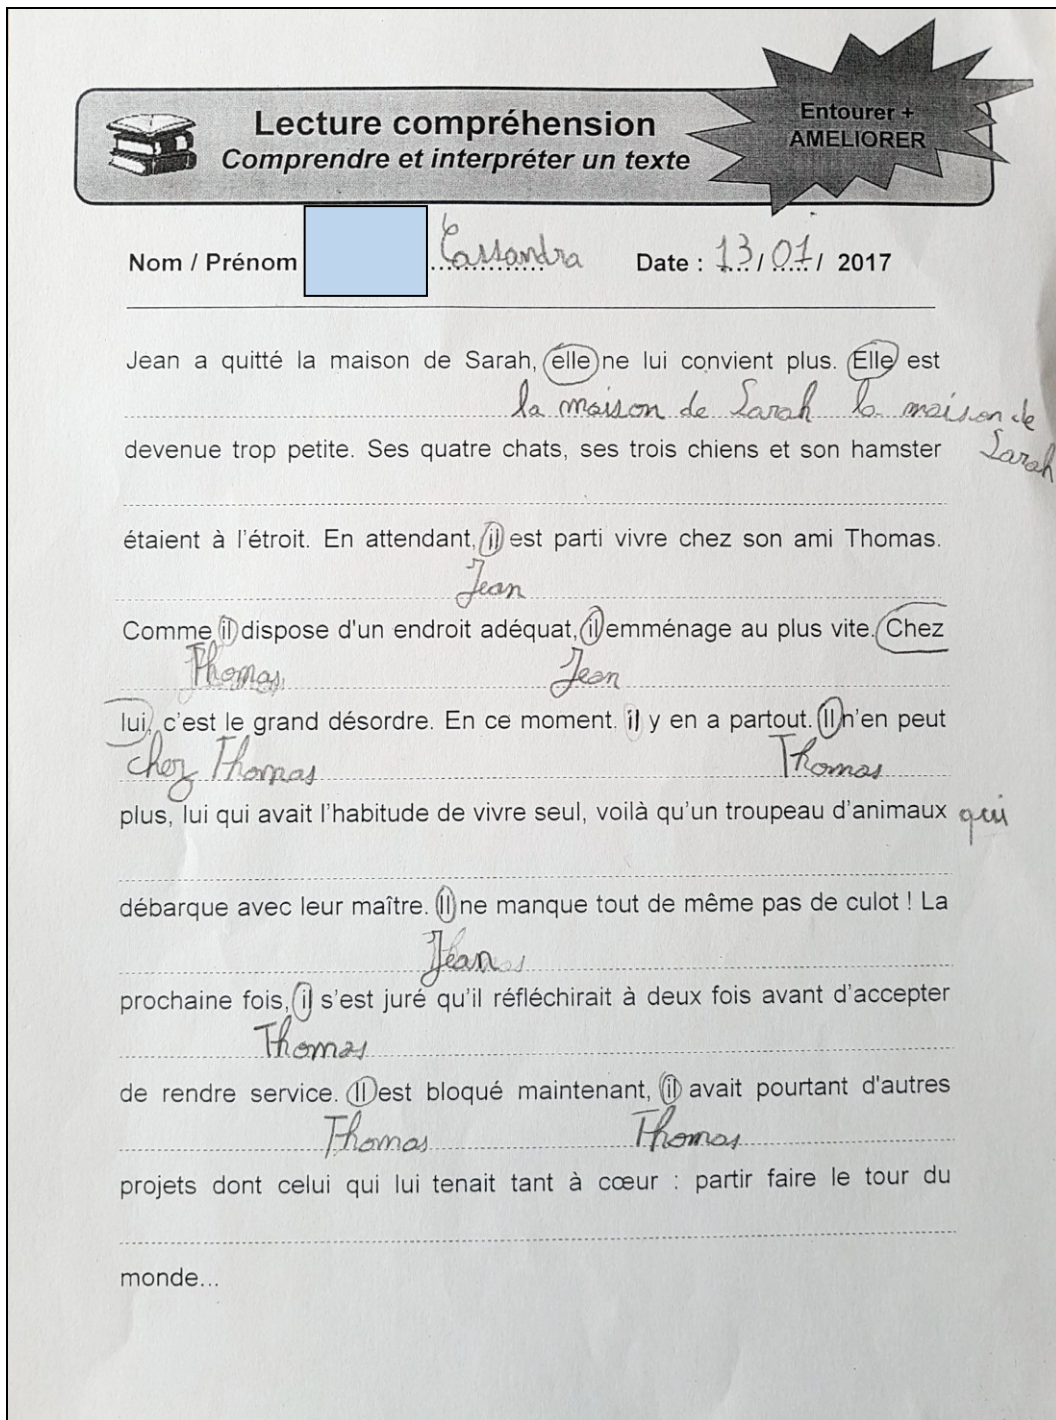 Lecture compréhension
Comprendre et interpréter un texte
Entourer +
AMELIORER
Nom / Prénom Cassandra Date : 13/01/ 2017
Jean a quitté la maison de Sarah, elle ne lui convient plus. Elle est
la maison de Sarah la maison de
Sarah
devenue trop petite. Ses quatre chats, ses trois chiens et son hamster
étaient à l'étroit. En attendant, il est parti vivre chez son ami Thomas.
Jean
Comme il dispose d'un endroit adéquat, il emménage au plus vite. Chez
Thomas Jean
lui, c'est le grand désordre. En ce moment. il y en a partout. Il n'en peut
chez Thomas Thomas
plus, lui qui avait l'habitude de vivre seul, voilà qu'un troupeau d'animaux qui
débarque avec leur maître. Il ne manque tout de même pas de culot ! La
Jean
prochaine fois, il s'est juré qu'il réfléchirait à deux fois avant d'accepter
Thomas
de rendre service. Il est bloqué maintenant, il avait pourtant d'autres
Thomas Thomas
projets dont celui qui lui tenait tant à cœur : partir faire le tour du
monde...